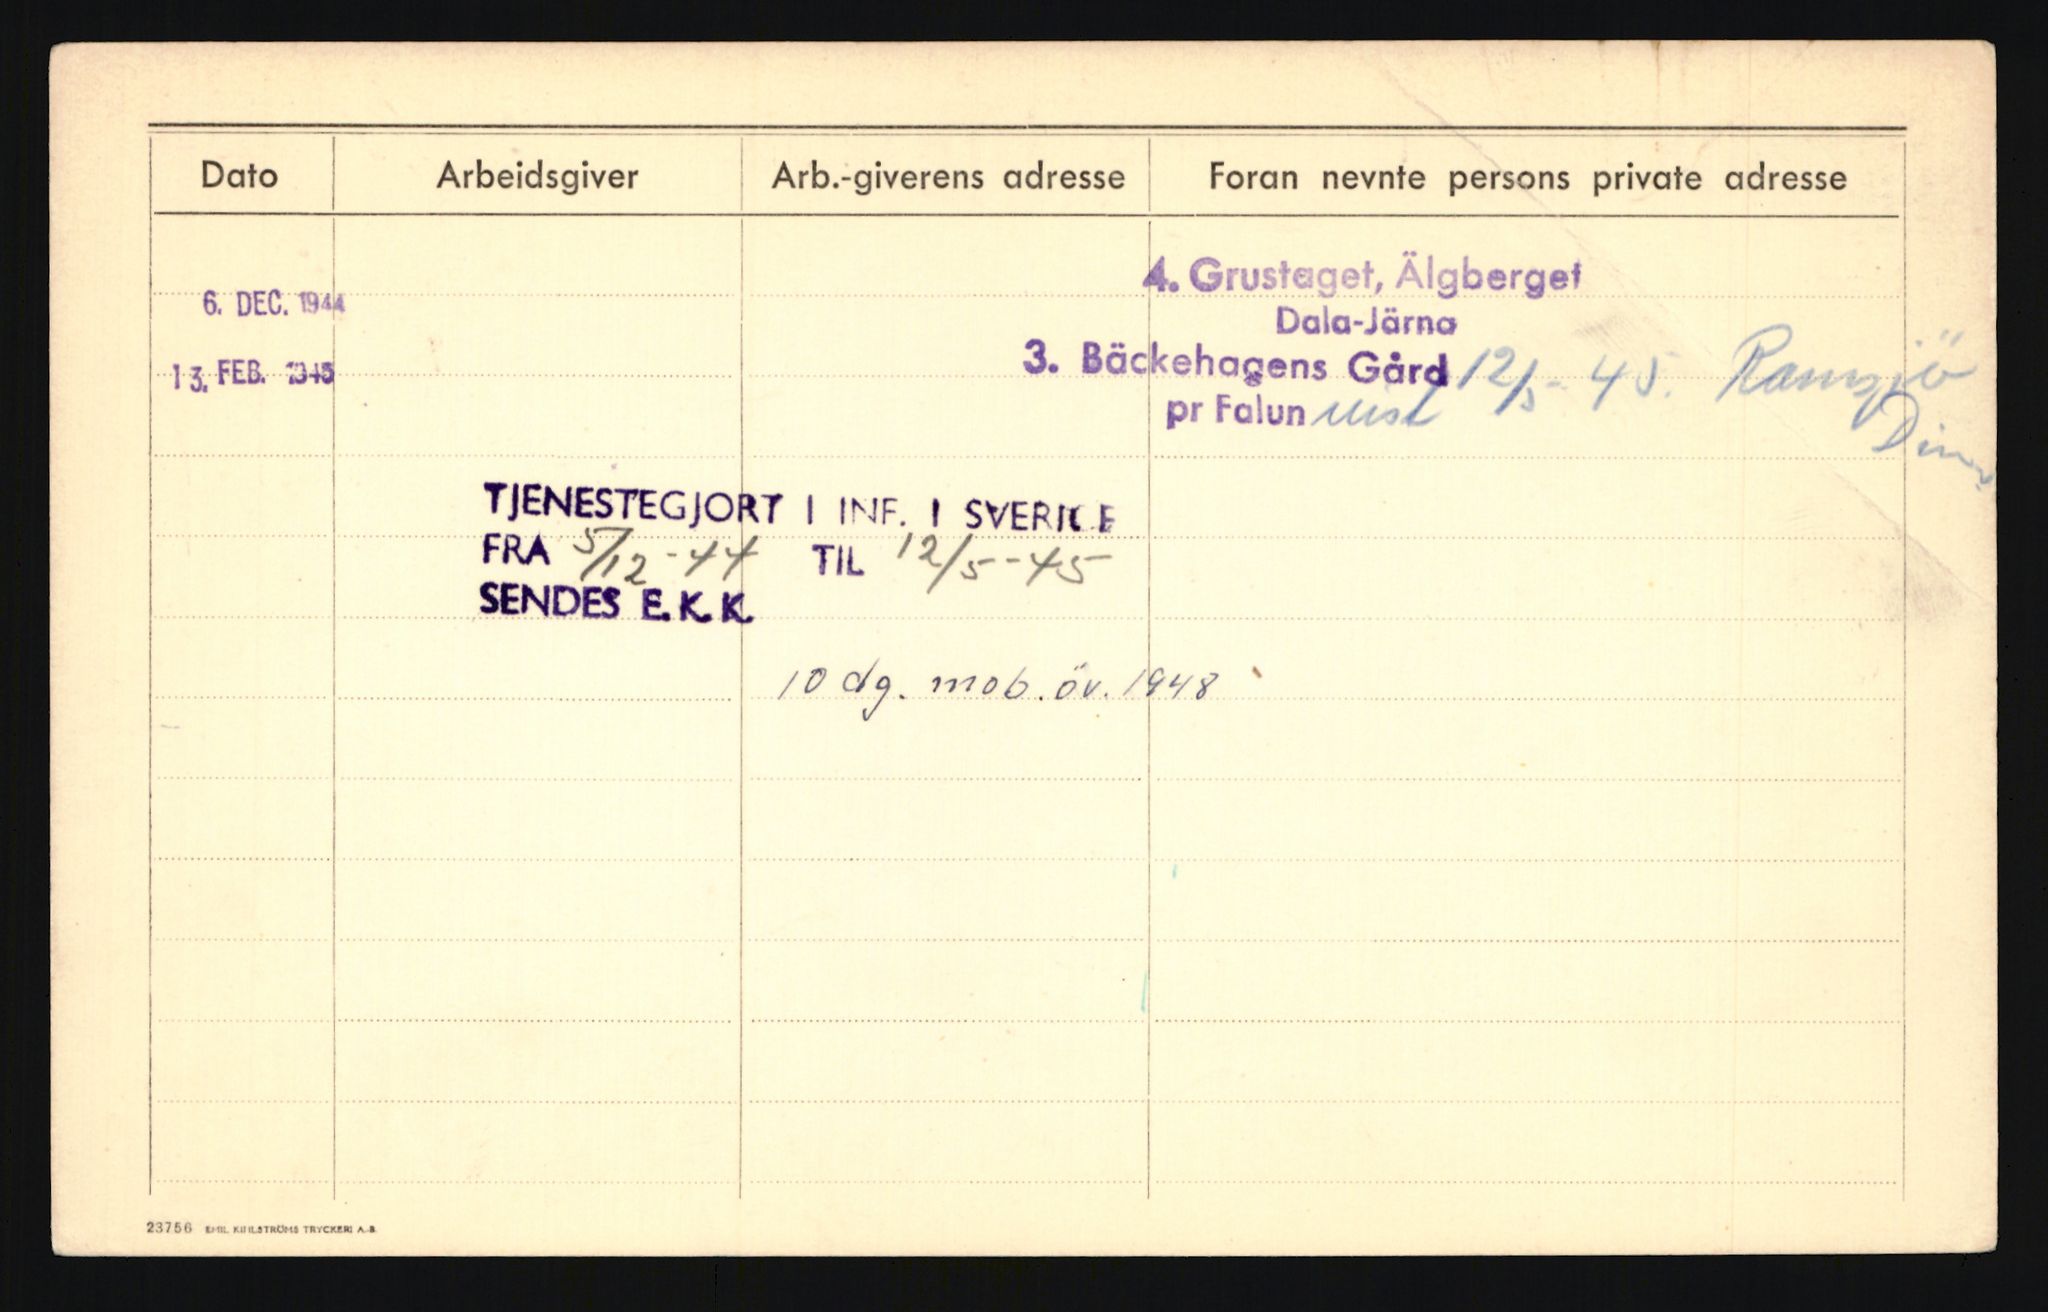 Dato Arbeidsgiver Arb.-giverens adresse Foran nevnte persons private adresse
4. Grustaget, Älgberget
6. DEC. 1944
Dala-Järna
13. FEB. 1945 3. Bäckehagens Gård 12/5-45. Ramsjö
pr Falun
TJENESTEGJORT I INF. I SVERIGE
FRA 5/12-44 TIL 12/5-45
SENDES E.K.K.
10 dg. mob. öv. 1948
23756 EMIL KIHLSTRÖMS TRYCKERI A.-B.